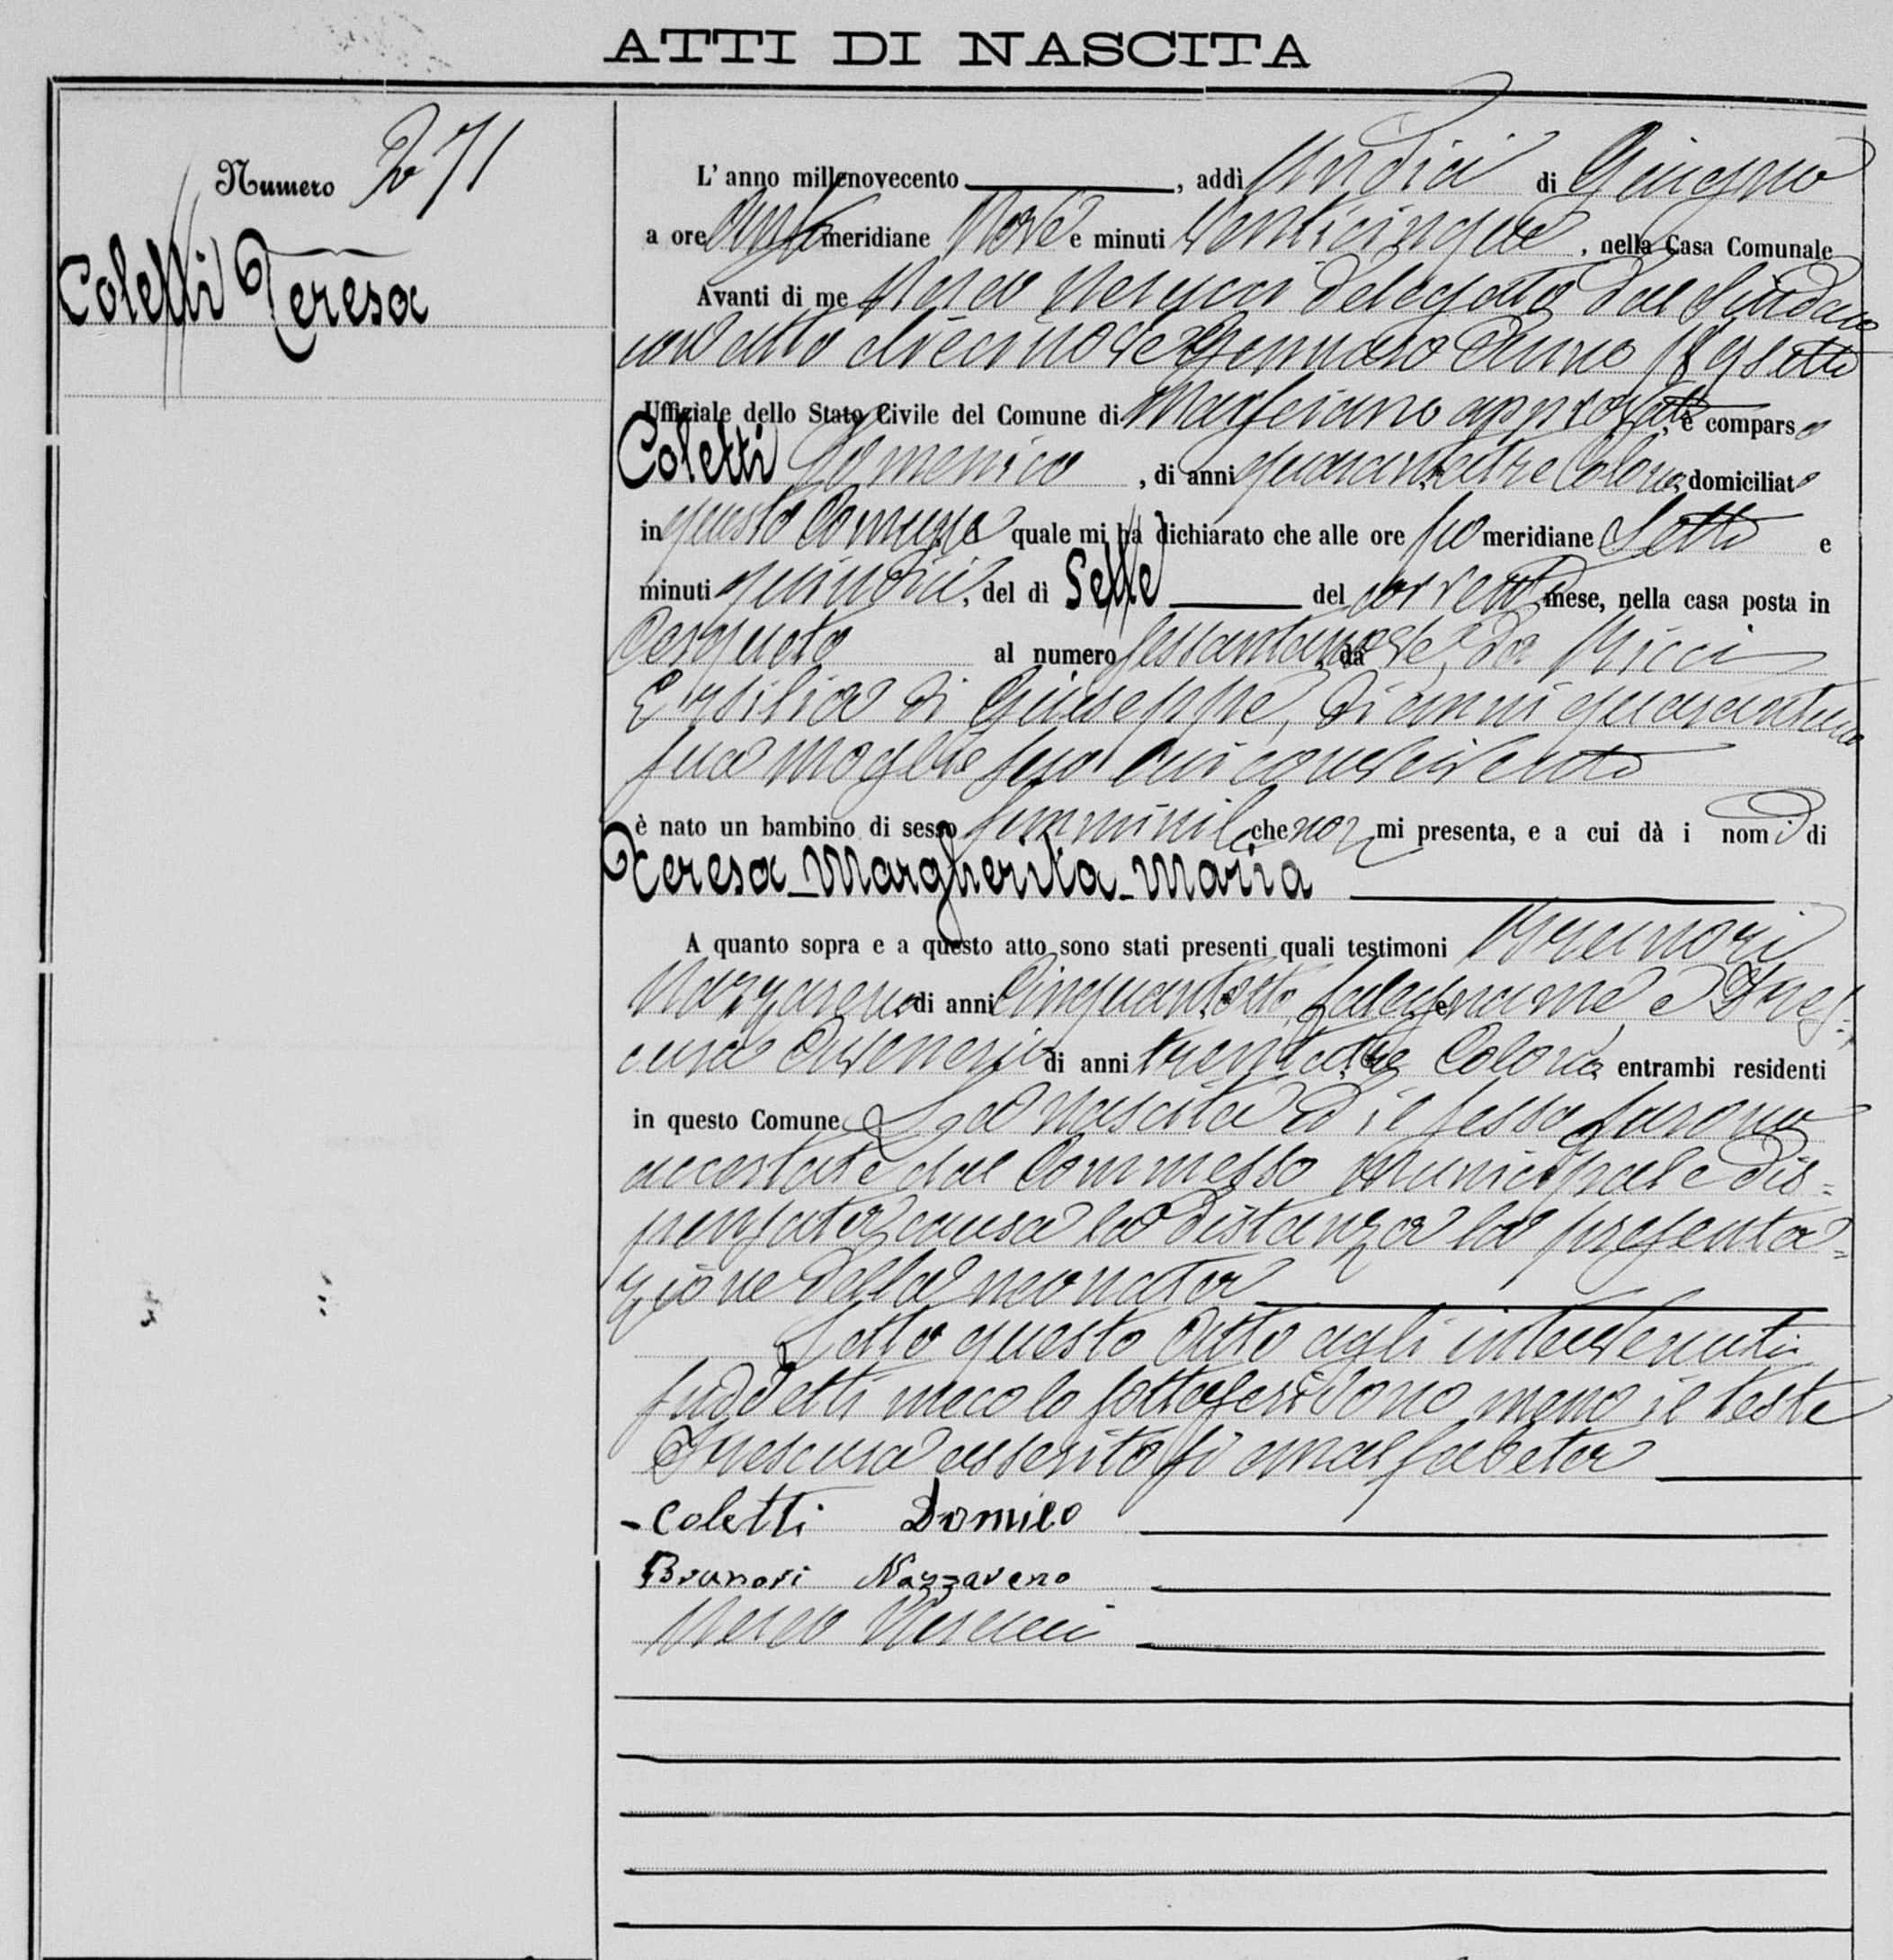 ATTI DI NASCITA
Numero 271
Coletti Teresa
L' anno millenovecento, addì Undici di Giugno
a ore Antimeridiane Nove e minuti Venticinque, nella Casa Comunale
Avanti di me Nerucci Delegato dal Sindaco
con atto diecinove Gennaro Anno 189sette
Ufficiale dello Stato Civile del Comune di Marsciano approvato, è comparso
Coletti Domenico, di anni quarantatre Colono, domiciliato
in questo Comune quale mi ha dichiarato che alle ore pomeridiane Sette e
minuti quindici, del dì Sette del corrente mese, nella casa posta in
Cerqueto al numero sessantanove, da da Ricci
Ersilia di Giuseppe, di anni quarantuno
sua moglie seco lui convivente
è nato un bambino di sesso femminile che non mi presenta, e a cui dà i nomi di
Teresa-Margherita-Maria
A quanto sopra e a questo atto sono stati presenti quali testimoni Brunori
Nazzareno di anni Cinquantotto, falegname e Fres=
cura di anni trentatre Colono, entrambi residenti
in questo Comune. La nascita ed il sesso furono
accertate dal Commesso Municipale dis=
pensata causa la distanza la presenta=
zione della neonata
Letto questo Atto agli intervenuti
suddetti meco lo sottoscrivono meno il teste
Frescura asseritosi analfabeta
- Coletti Domico
Brunori Nazzareno
Nerucci